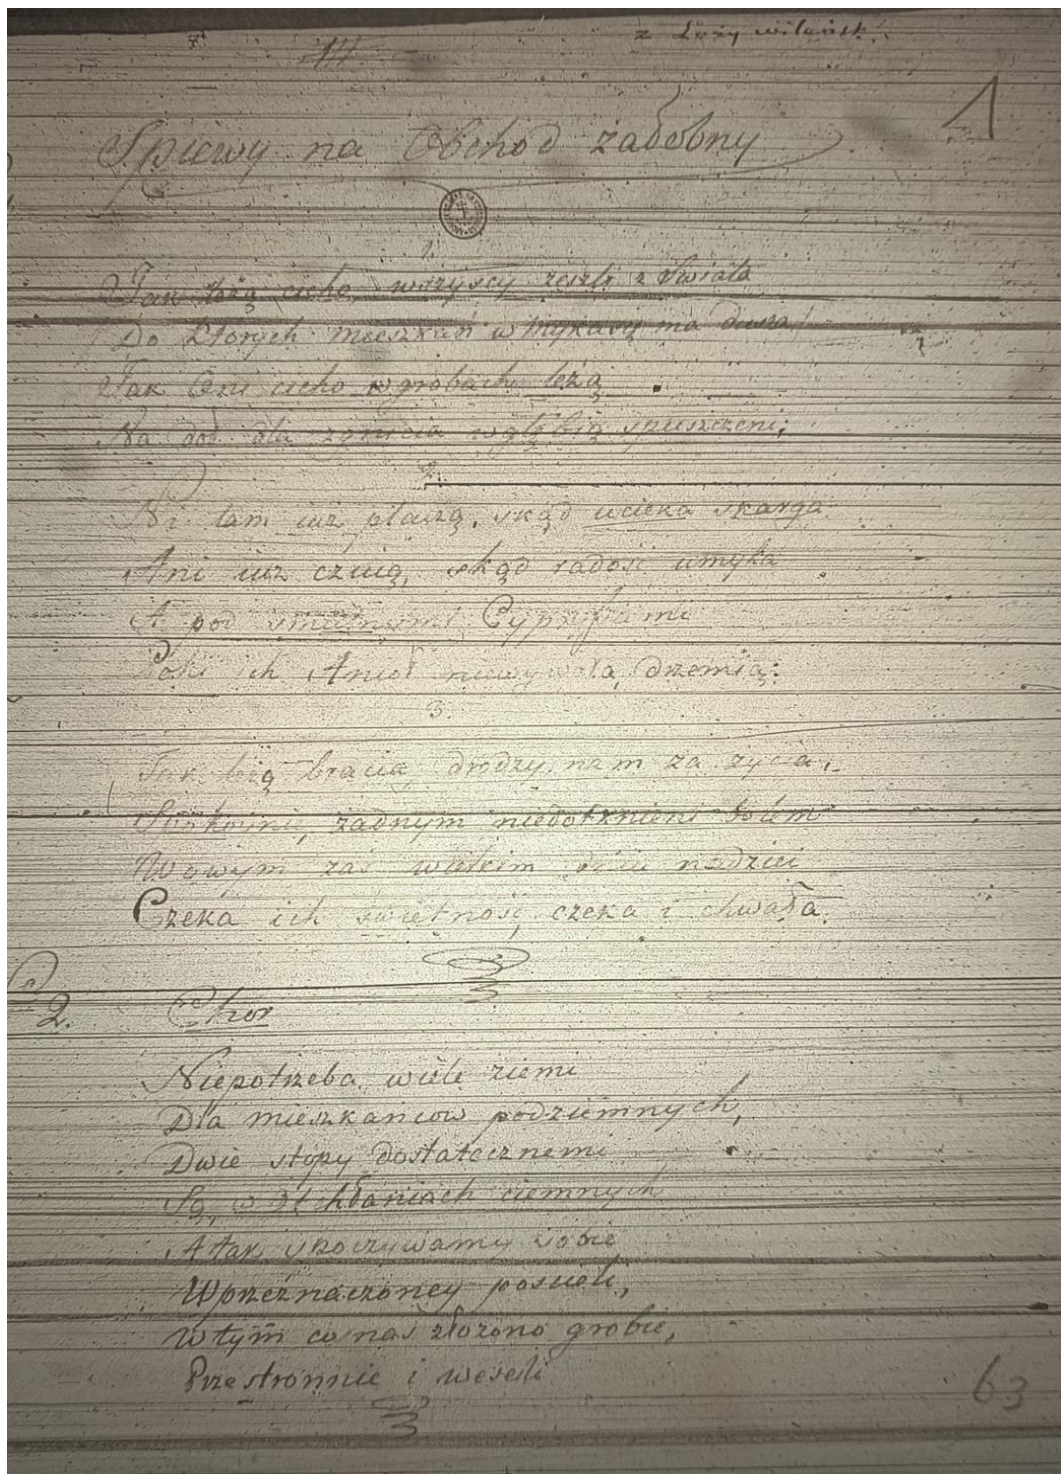 z Loży wileńsk.
1
Spiewy na Obchod żałobny
1.
Jak leżą cicho, wszyscy zeszli z Swiata
Do ktorych mieszkań wmykasię ma dusza
Jak Oni cicho w grobach leżą
Na doł dla zgnicia wgłębią spuszczeni;
2.
Ni tam iuż płaczą, skąd ucieka skarga
Ani iuż czuią, skąd radość umyka
A pod smutnymi Cyprysami
Poki ich Anioł niewywoła, drzemią:
3.
Tak leżą bracia drodzy nam za życia,
Spokoyni, żadnym niedotknieni bolem
W owym zaś wielkim dniu nadziei
Czeka ich swietność, czeka i chwała.
2. Chor
Niepotrzeba wiele ziemi
Dla mieszkańcow podziemnych,
Dwie stopy dostatecznemi
Są, w Otchłaniach ciemnych
A tak spoczywamy sobie
W przeznaczoney poscieli,
W tym co nas złożono grobie,
Przestronnie i weseli
63